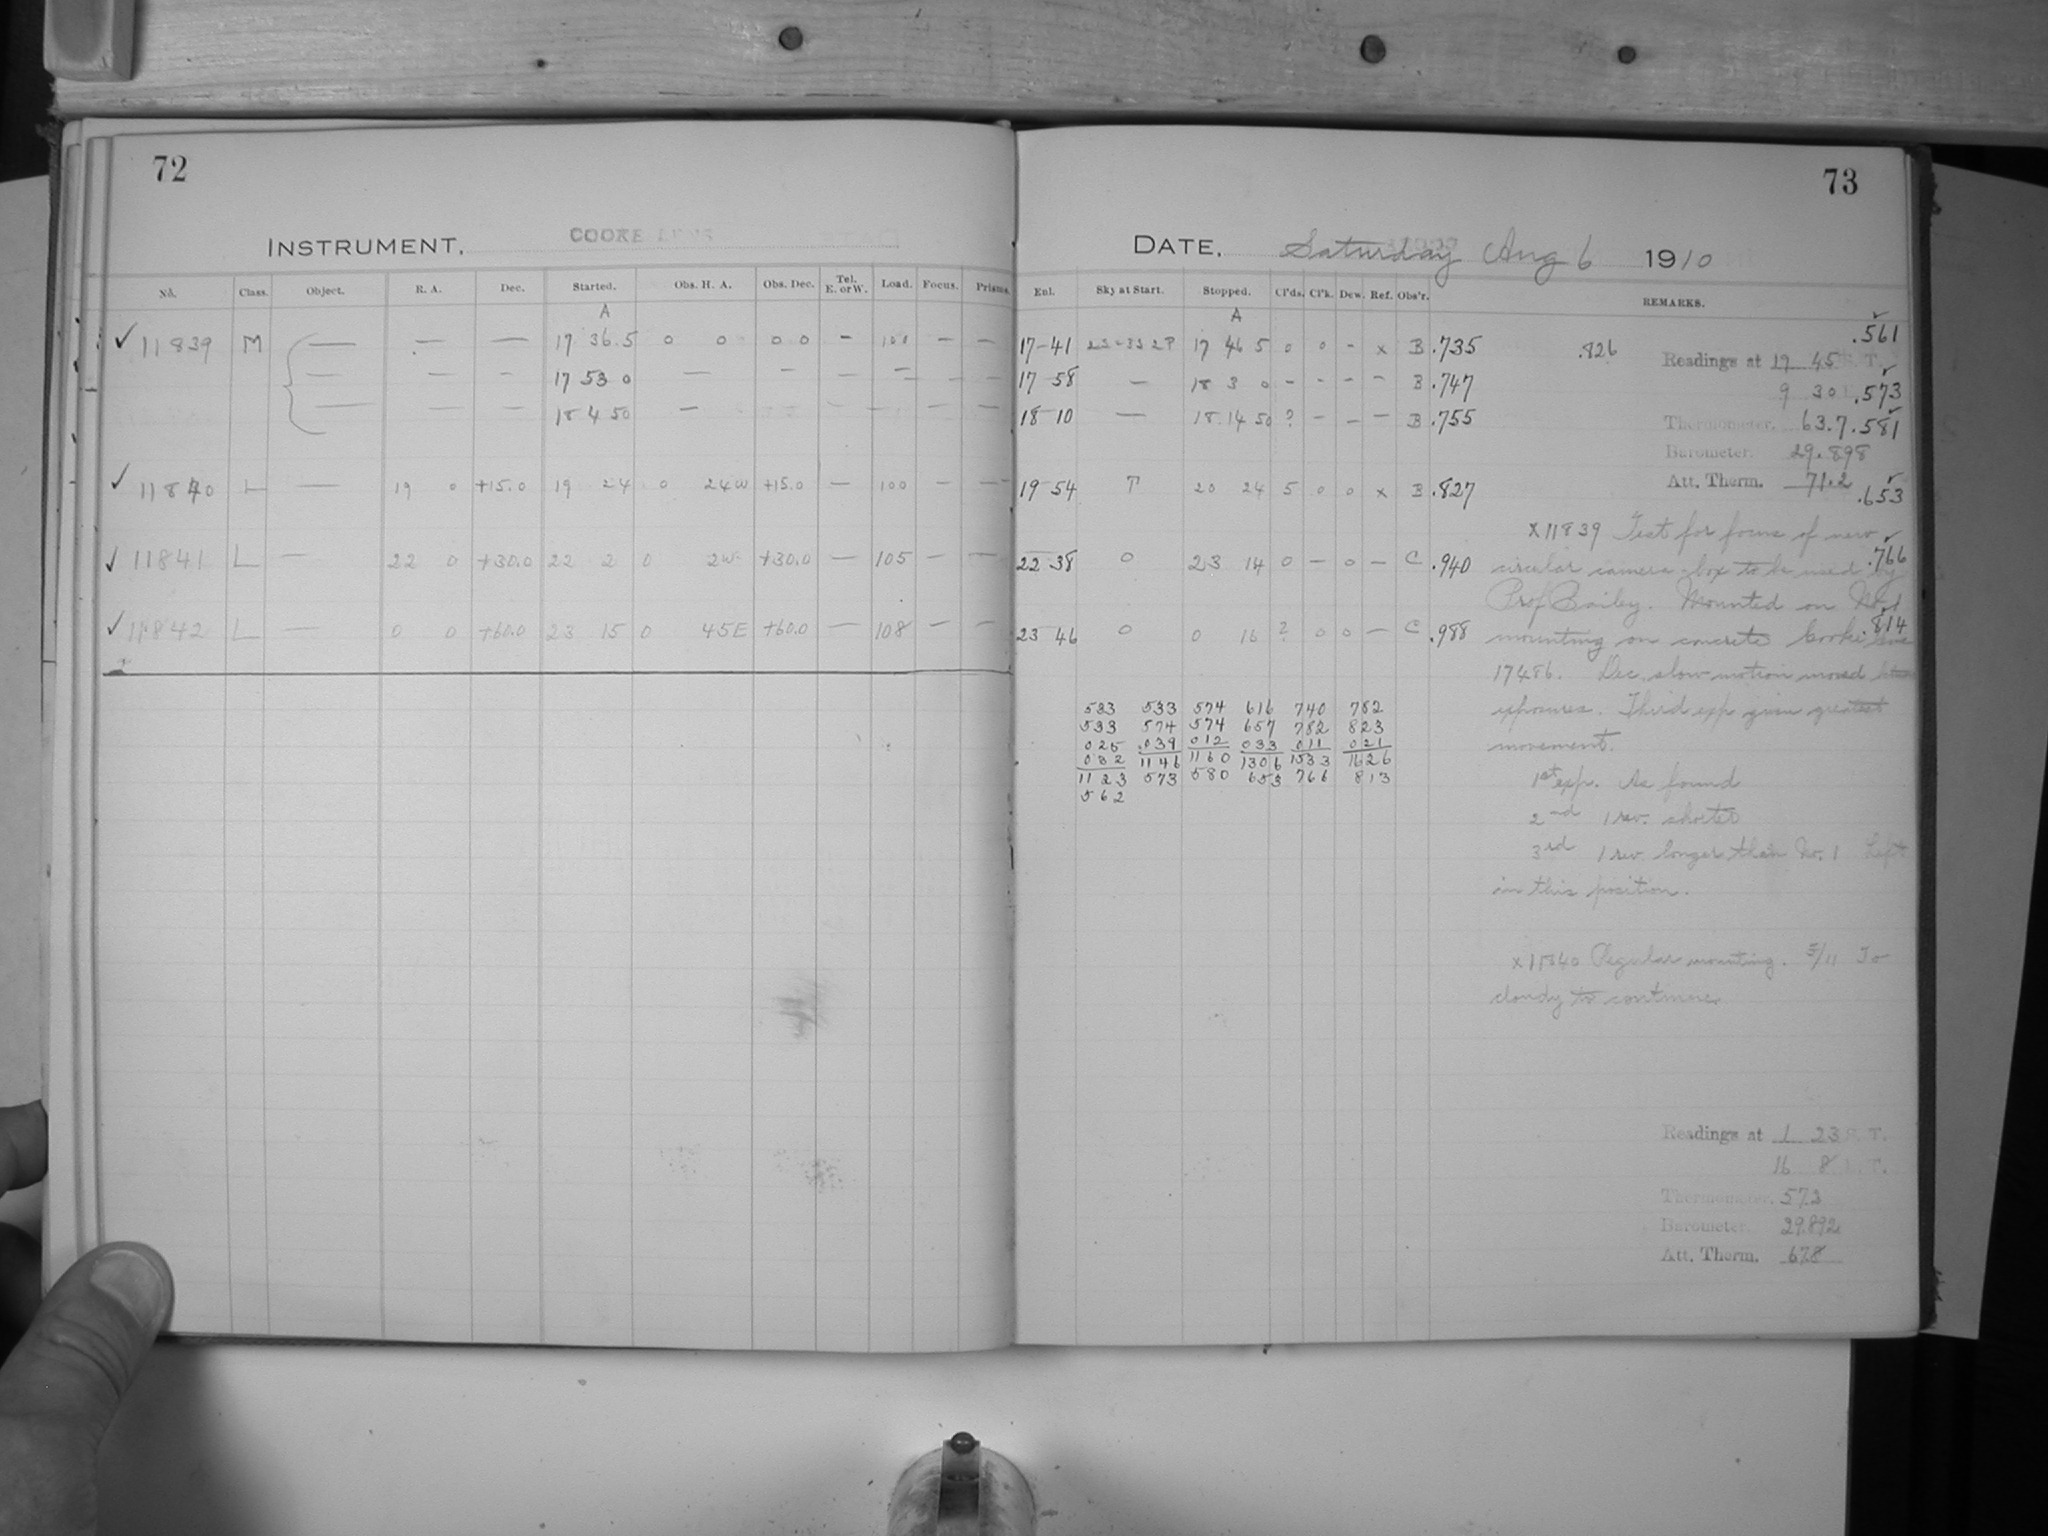 72
73
INSTRUMENT. COOKE LENS
DATE. Saturday Aug 6 1910
No. Class. Object. R. A. Dec. Started. Obs. H. A. Obs. Dec. Tel. E. or W. Load. Focus. Prisms.
Enl. Sky at Start. Stopped. Cl'ds. Cl'k. Dew. Ref. Obs'r. REMARKS.
A
A
✓ 11839 M — — — 17 36.5 0 0 0 0 — 100 — —
17-41 17 46 5 0 0 - x B .735 .826
.561
Readings at 19 45 S. T.
— — — 17 53 0 — — — — — —
17 58 — 18 3 0 - - - - B .747
9 30 .573
— — — 18 4 50 —
18 10 — 18 14 50 ? - - - B .755
Thermometer. 63.7 .581
Barometer. 29.898
✓ 11840 L — 19 0 +15.0 19 24 0 24W +15.0 — 100 — —
19 54 T 20 24 5 0 0 x B .827
Att. Therm. 71.2 .653
✓ 11841 L — 22 0 +30.0 22 2 0 2W +30.0 — 105 — —
22 38 0 23 14 0 - 0 - C .940
.766
✓ 11842 L — 0 0 +60.0 23 15 0 45E +60.0 — 108 — —
23 46 0 0 16 ? 0 0 — C .988
.814
x11839 Test for focus of new
circular camera box to be used by
Prof Bailey. Mounted on No. 1
mounting on concrete Cooke lens
17486. Dec. slow motion moved
exposures. Third exp given greatest
movement.
1st exp. As found
2nd 1 rev. shorter
3rd 1 rev. longer than No. 1 Left
in this position.
533 533 574 616 740 782
533 574 574 657 782 823
025 .039 012 033 011 021
032 1146 1160 1306 1533 1626
1123 573 580 653 766 813
562
x11840 Regular mounting. 5/11 To
cloudy to continue.
Readings at 1 23 S. T.
16 8 L. T.
Thermometer. 57.3
Barometer. 29.892
Att. Therm. 67.8